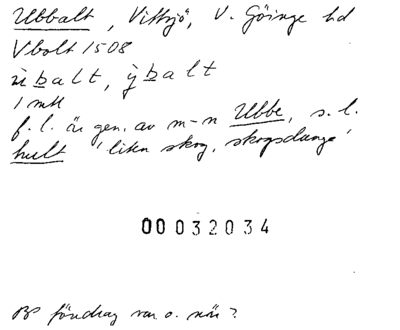 Ubbalt, Vittsjö, V. Göinge hd
Vbolt 1508
ù̀balt, ỳbalt
1 mtl
f. l. är gen. av m-n Ubbe, s. l.
hult 'liten skog, skogsdunge'
00032034
BP föredrag var o. när?